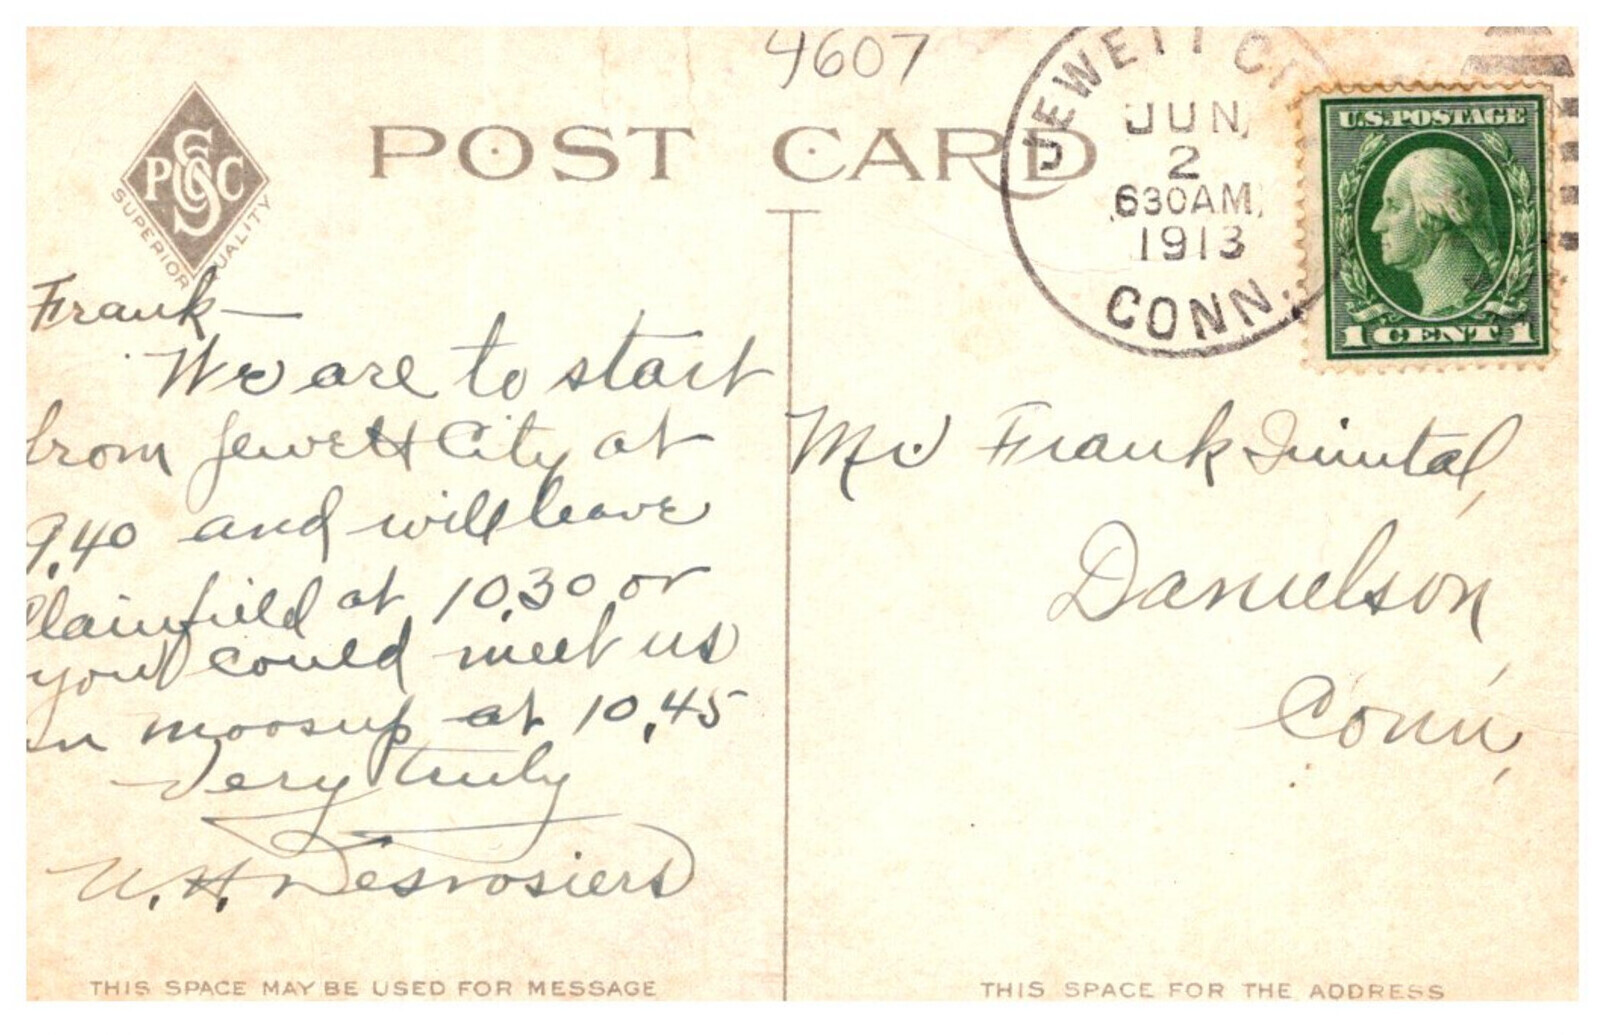 4607
PSC
SUPERIOR QUALITY
POST CARD
JEWETT CI
JUN
2
630AM
1913
CONN.
U.S.POSTAGE
1 CENT 1
Frank—
We are to start
from Jewett City at
9.40 and will leave
Plainfield at 10.30 or
you could meet us
in moosup at 10.45
Very truly
U. H. Desrosiers
Mr Frank
Danielson,
Conn,
THIS SPACE MAY BE USED FOR MESSAGE
THIS SPACE FOR THE ADDRESS